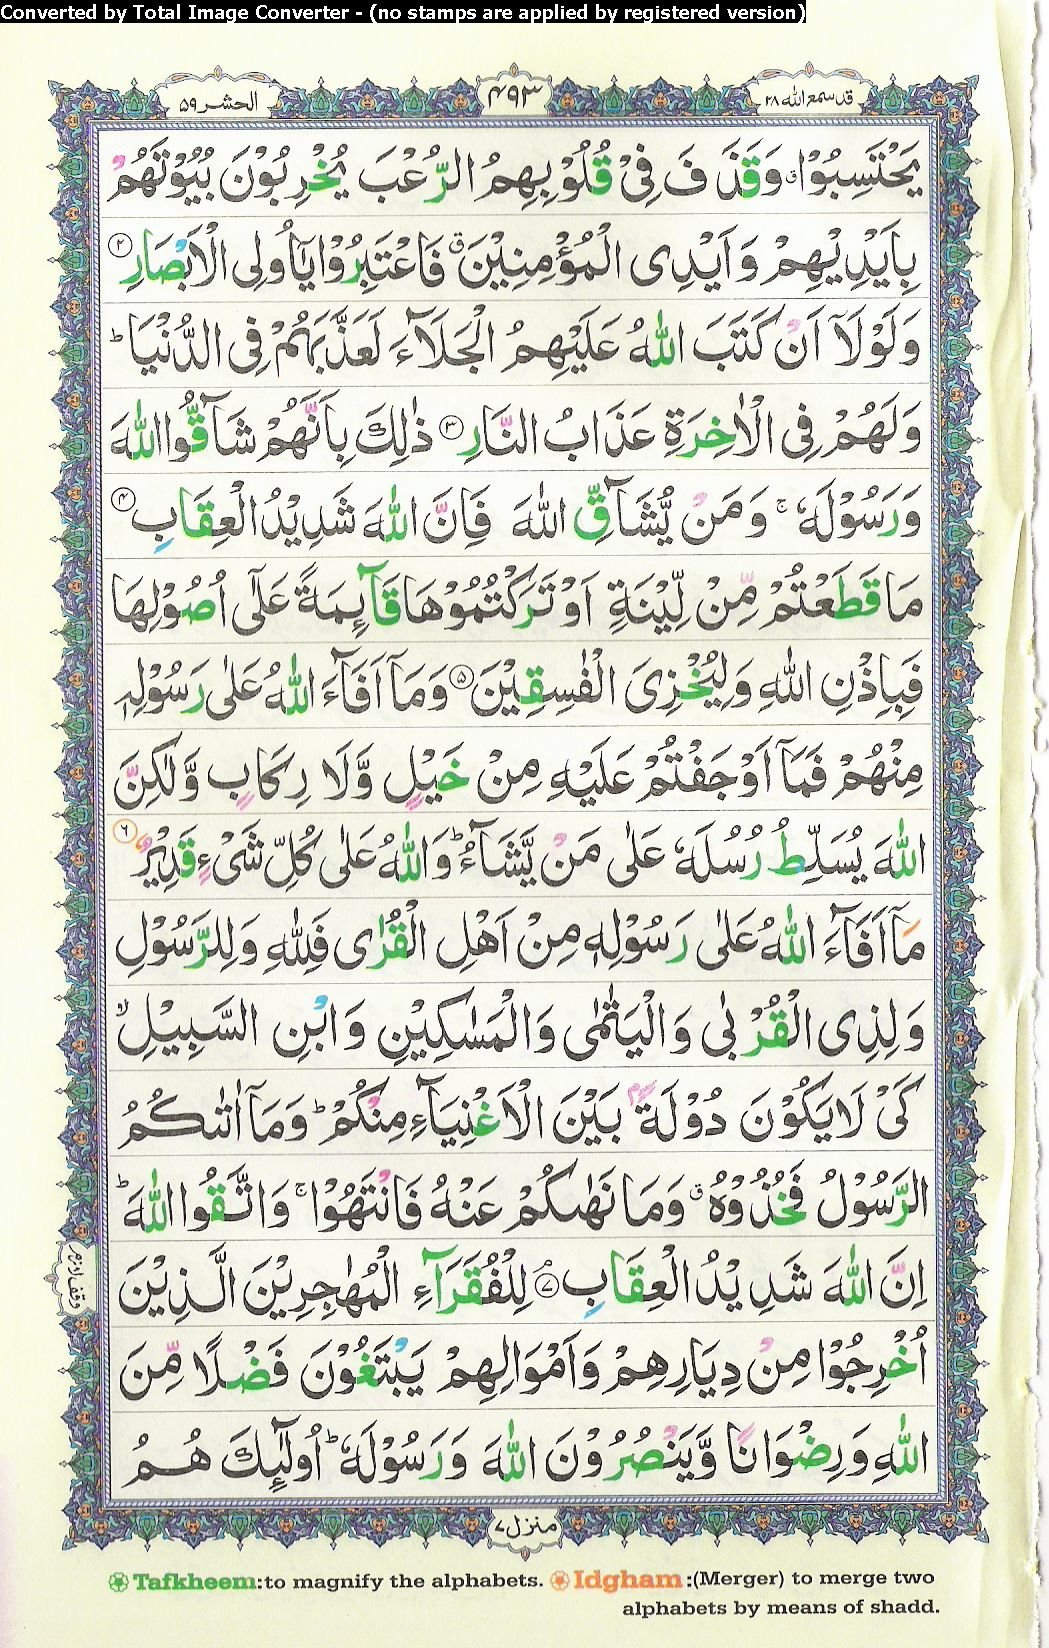 Converted by Total Image Converter - (no stamps are applied by registered version)
قد سمع الله ٢٨
٤٩٣
الحشر ٥٩
يَحْتَسِبُوْا ۤ وَقَذَفَ فِیْ قُلُوْبِهِمُ الرُّعْبَ يُخْرِبُوْنَ بُيُوْتَهُمْ
بِاَيْدِيْهِمْ وَاَيْدِی الْمُؤْمِنِيْنَ ۤ فَاعْتَبِرُوْا يٰۤاُولِی الْاَبْصَارِ ۝۲
وَلَوْلَاۤ اَنْ كَتَبَ اللّٰهُ عَلَيْهِمُ الْجَلَآءَ لَعَذَّبَهُمْ فِی الدُّنْيَا ؕ
وَلَهُمْ فِی الْاٰخِرَةِ عَذَابُ النَّارِ ۝۳ ذٰلِكَ بِاَنَّهُمْ شَآقُّوا اللّٰهَ
وَرَسُوْلَهٗ ۚ وَمَنْ يُّشَآقِّ اللّٰهَ فَاِنَّ اللّٰهَ شَدِيْدُ الْعِقَابِ ۝۴
مَا قَطَعْتُمْ مِّنْ لِّيْنَةٍ اَوْ تَرَكْتُمُوْهَا قَآئِمَةً عَلٰۤی اُصُوْلِهَا
فَبِاِذْنِ اللّٰهِ وَلِيُخْزِیَ الْفٰسِقِيْنَ ۝۵ وَمَاۤ اَفَآءَ اللّٰهُ عَلٰی رَسُوْلِهٖ
مِنْهُمْ فَمَاۤ اَوْجَفْتُمْ عَلَيْهِ مِنْ خَيْلٍ وَّلَا رِكَابٍ وَّلٰكِنَّ
اللّٰهَ يُسَلِّطُ رُسُلَهٗ عَلٰی مَنْ يَّشَآءُ ؕ وَاللّٰهُ عَلٰی كُلِّ شَیْءٍ قَدِيْرٌ ۝۶
مَاۤ اَفَآءَ اللّٰهُ عَلٰی رَسُوْلِهٖ مِنْ اَهْلِ الْقُرٰی فَلِلّٰهِ وَلِلرَّسُوْلِ
وَلِذِی الْقُرْبٰی وَالْيَتٰمٰی وَالْمَسٰكِيْنِ وَابْنِ السَّبِيْلِ ۙ
كَیْ لَا يَكُوْنَ دُوْلَةًۢ بَيْنَ الْاَغْنِيَآءِ مِنْكُمْ ؕ وَمَاۤ اٰتٰىكُمُ
الرَّسُوْلُ فَخُذُوْهُ ۤ وَمَا نَهٰىكُمْ عَنْهُ فَانْتَهُوْا ۚ وَاتَّقُوا اللّٰهَ ؕ
اِنَّ اللّٰهَ شَدِيْدُ الْعِقَابِ ۝۷ لِلْفُقَرَآءِ الْمُهٰجِرِيْنَ الَّذِيْنَ
وقف لازم
اُخْرِجُوْا مِنْ دِيَارِهِمْ وَاَمْوَالِهِمْ يَبْتَغُوْنَ فَضْلًا مِّنَ
اللّٰهِ وَرِضْوَانًا وَّيَنْصُرُوْنَ اللّٰهَ وَرَسُوْلَهٗ ؕ اُولٰٓئِكَ هُمُ
منزل ٧
Tafkheem:to magnify the alphabets. Idgham:(Merger) to merge two
alphabets by means of shadd.